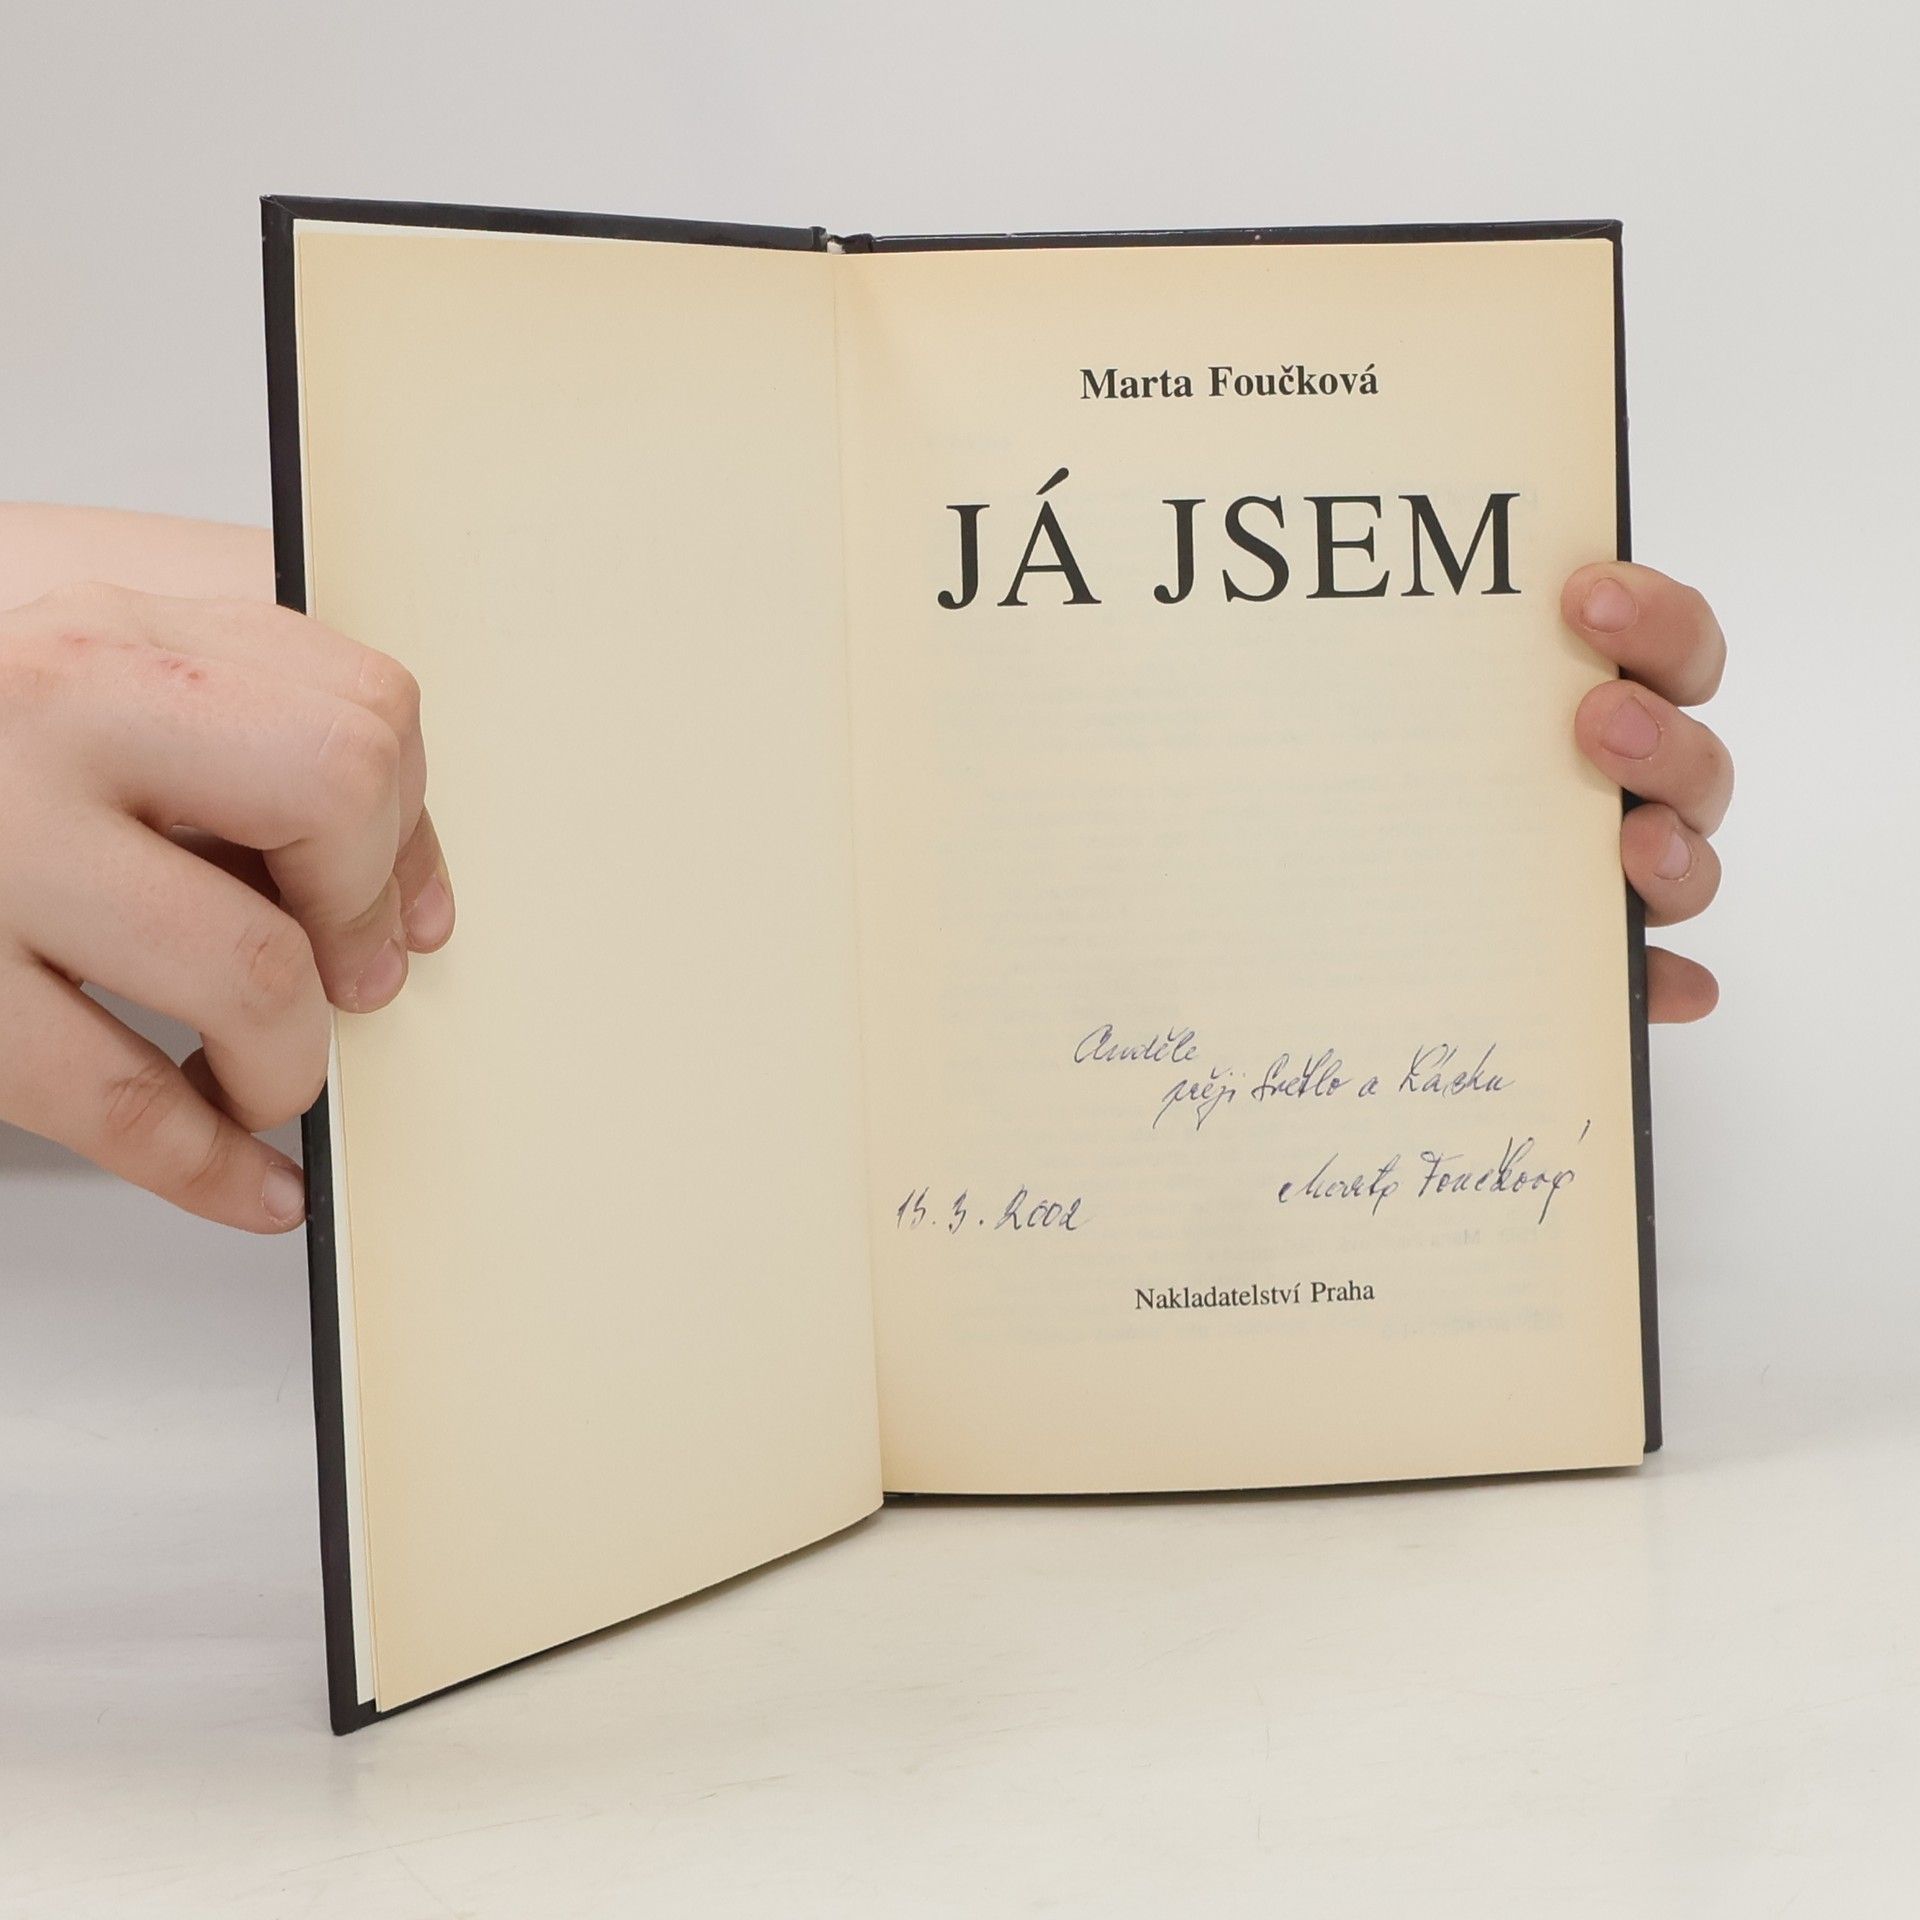 Marta Foučková
JÁ JSEM
Anděle
přeji Světlo a Lásku
Marta Foučková
15. 3. 2002
Nakladatelství Praha